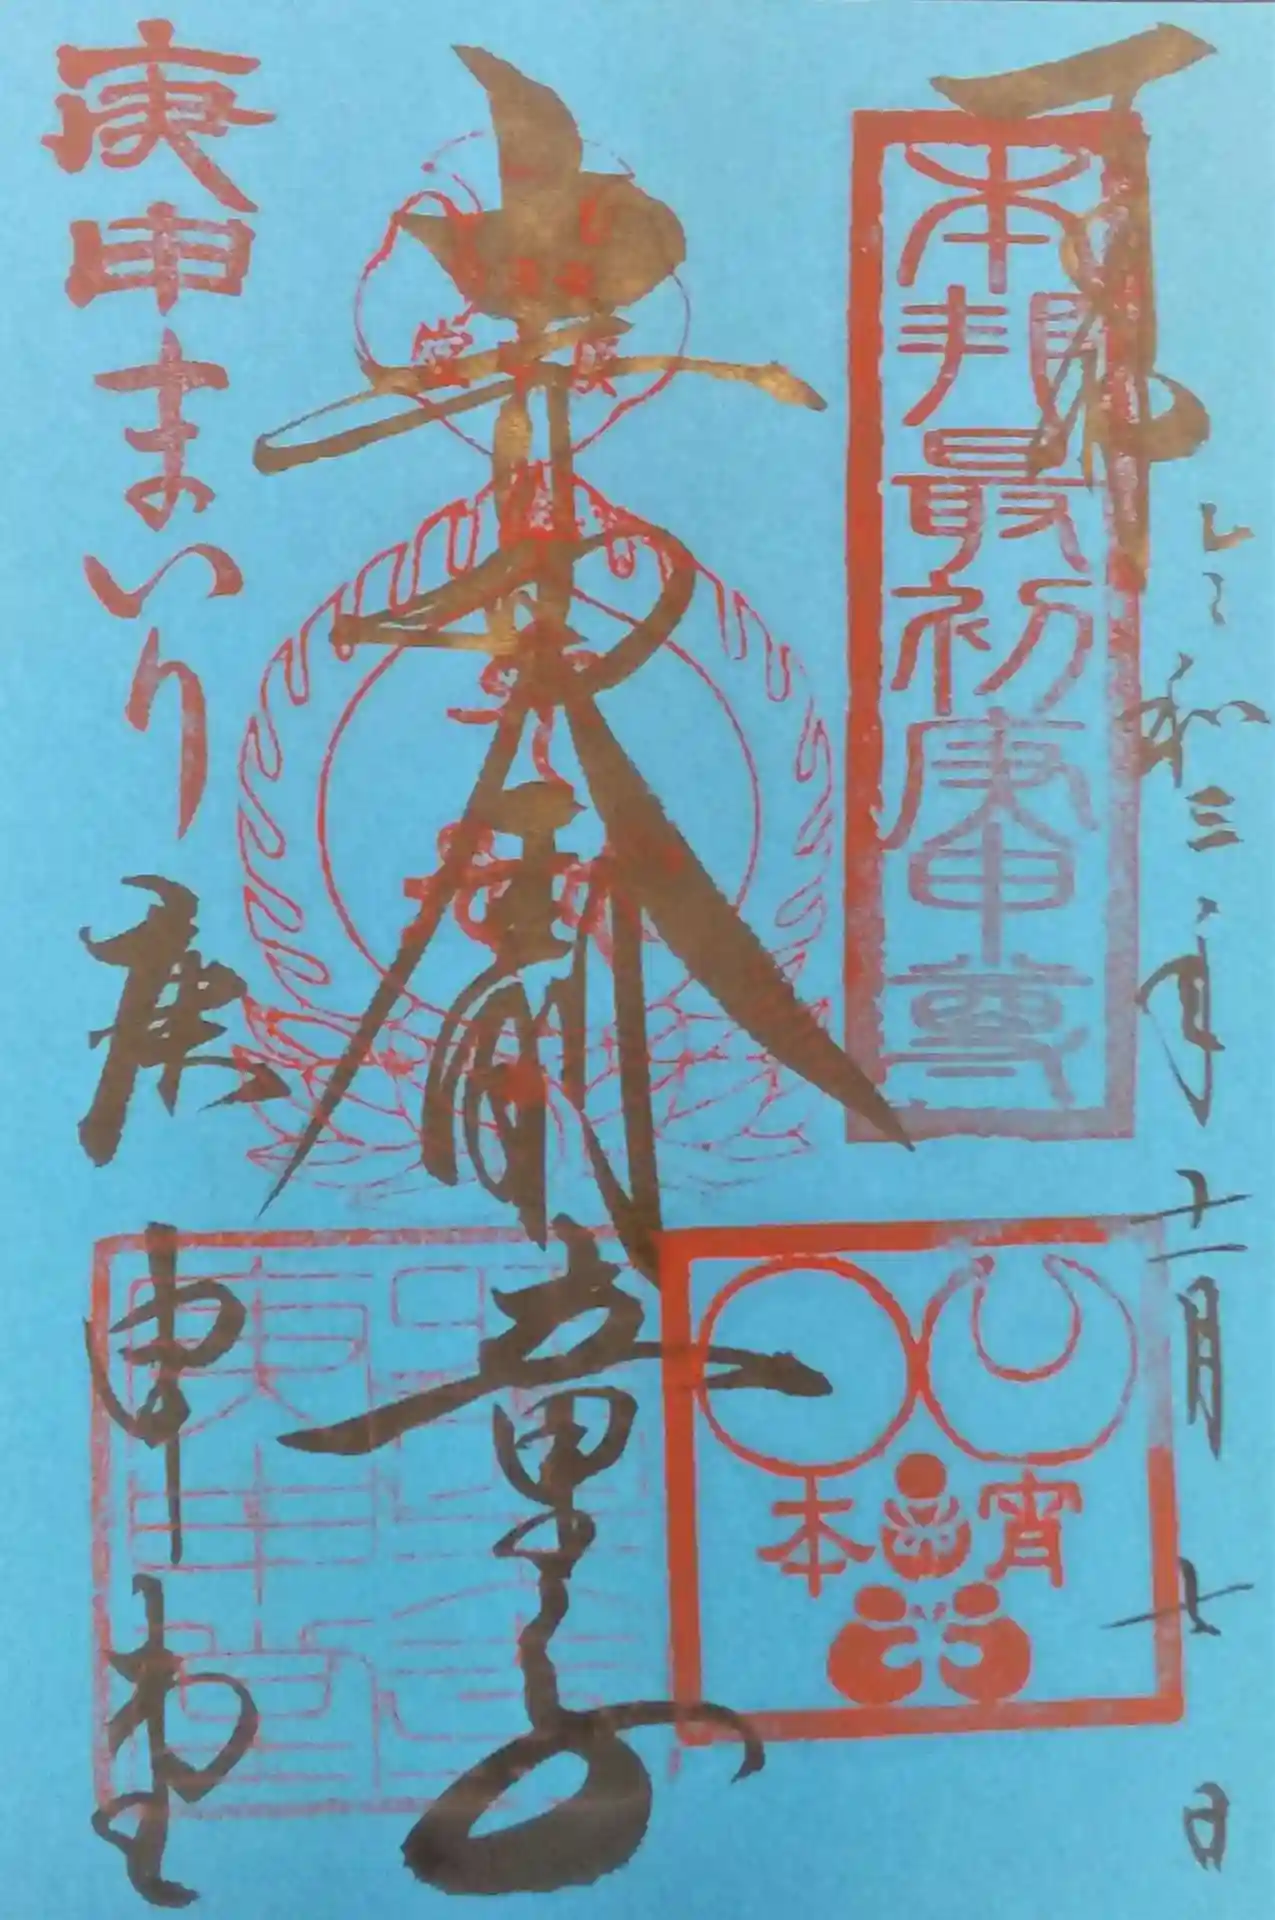 奉拝
本邦最初庚申尊
令和三年十一月七日
宵
本
青面金剛童子
庚申まいり
庚申堂